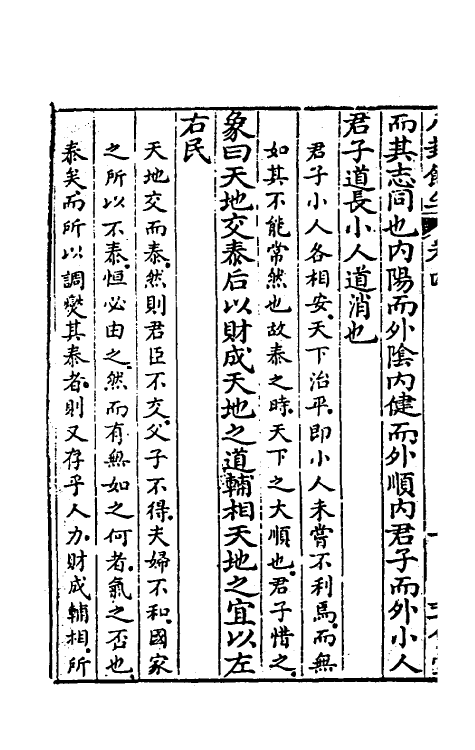 而其志同也內陽而外陰內健而外順內君子而外小人
君子道長小人道消也
君子小人各相安天下治平即小人未嘗不利焉而無
如其不能常然也故泰之時天下之大順也君子惜之
象曰天地交泰后以財成天地之道輔相天地之宜以左
右民
天地交而泰然則君臣不交父子不得夫婦不和國家
之所以不泰恒必由之然而有無如之何者氣之否也
泰矣而所以調燮其泰者則又存乎人力財成輔相所